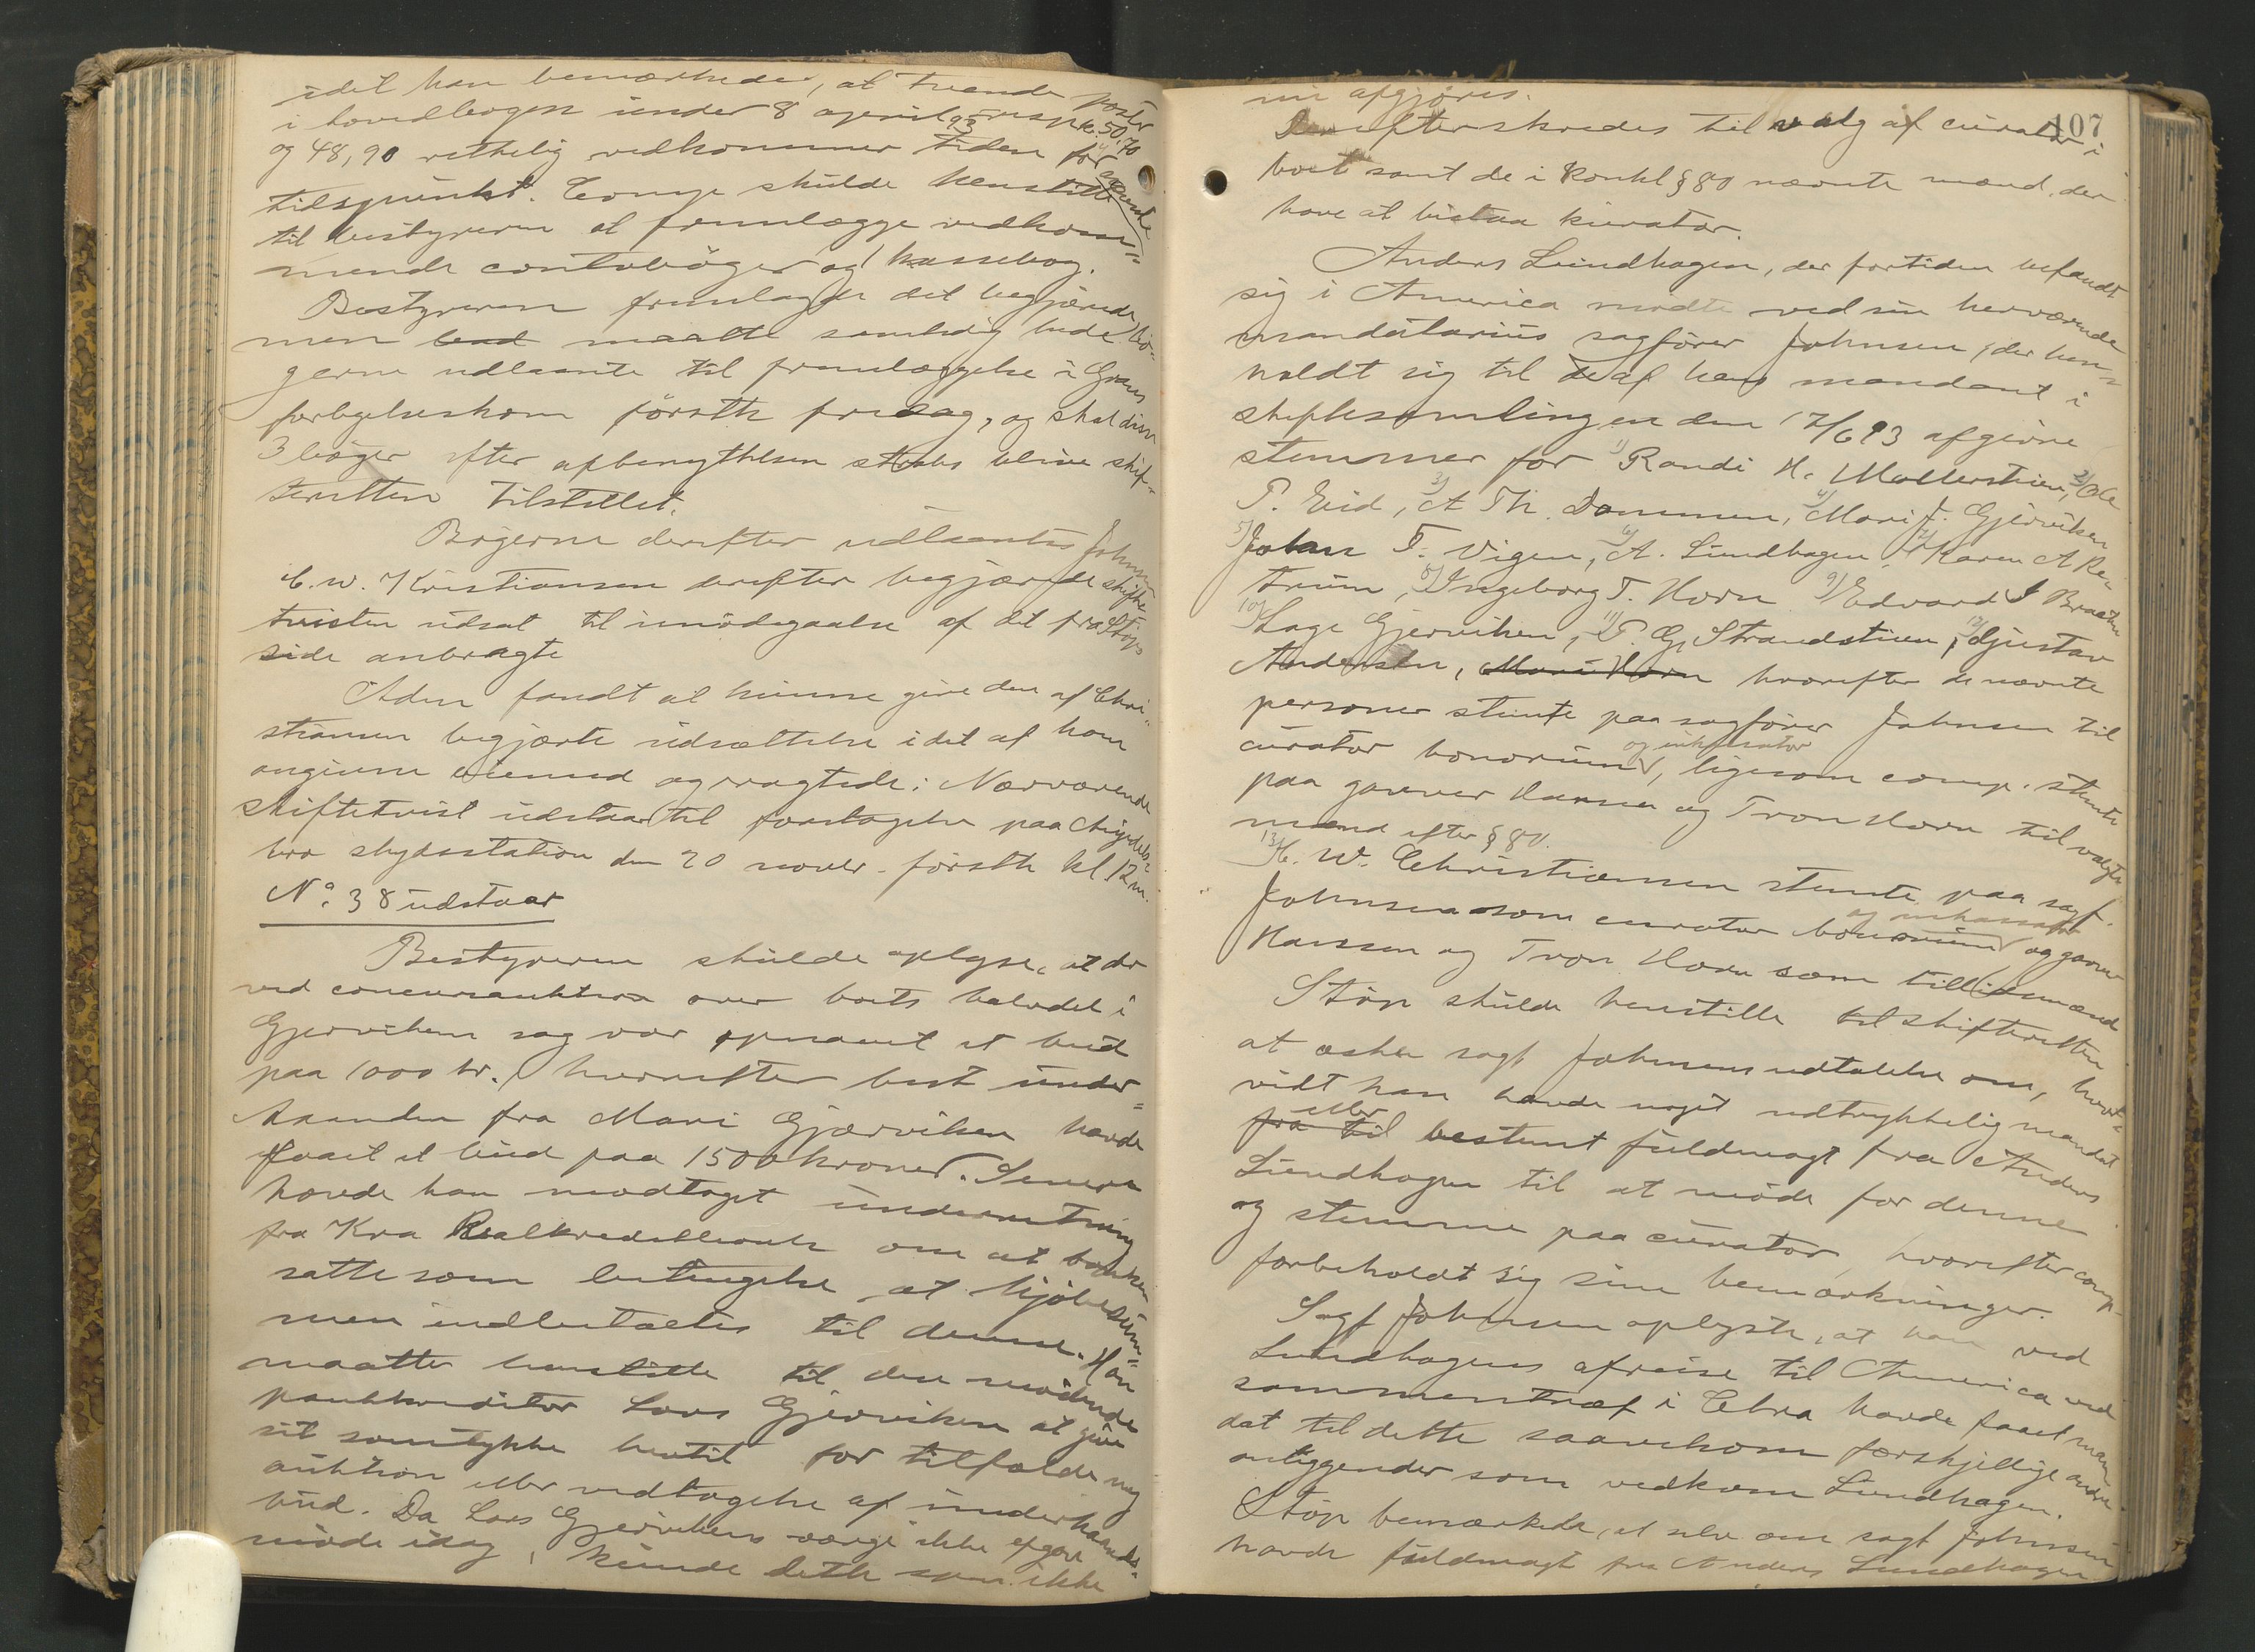 idet han bemærkede, at tvende poster
i hovedbogen under 8 april 93 resp k. 50,70
og 48,90 rettelig vedkommer tiden for
tidspunkt. Comp skulde henstille
til bestyreren at fremlægge vedkom-
mende contobøger og kassebog.
Bestyreren fremlagde det begjærede,
men maatte samtidig bede bø-
gerne udlaante til fremlæggelse i Grans
forligelseskom første fredag, og skal disse
3 bøger efter afbenyttelsen straks blive skif-
teretten tilstillet.
Bøgerne derefter udlaantes Johnsen
C. W. Kristiansen derefter begjærede skifte
tvisten udsat til imødegaaelse af det fra Støps
side anbragte
Aden fandt at kunne give den af Chri-
stiansen begjærte udsættelse i det af ham
angivne øiemed og vagtede: Nærværende
skiftetvist udstaar til foretagelse paa
bro skydsstation den 20 novbr. første kl 12 m.
No. 38 udstaar
Bestyreren skulde oplyse, at der
ved concursauktion over boets halvdel i
Gjervikens sag var opnaaet et bud
paa 1000 kr. hvorefter best under-
haanden fra Mari Gjærviken havde
faaet et bud paa 1500 kroner. Senere
havde han modtaget underretning
fra Kra Realkreditbank om at banken
satte som betingelse at kjøbesum-
men indbetaltes til denne. Han
maatte henstille til den mødende
pantkreditor Lars Gjerviken at give
sit samtykke hertil for tilfælde ny
auktion eller vedtagelse af underhaands-
bud. Da Lars Gjervikens værge ikke
møde idag, kunde dette spm. ikke
107
nu afgjøres.
Derefter skredes til valg af curator i
boet samt de i Konkl § 80 nævnte mænd, der
have at bistaa kurator.
Anders Lundhagen, der fortiden befandt
sig i America mødte ved sin herværende
mandatarius sagfører Johnsen, der hen-
holdt sig til de af hans mandant i
skiftesamlingen den 17/6 93 afgivne
stemmer for 1) Randi H. Møllerstuen, 2) Ole
P. Eid, 3) A Th. Dammen, 4) Mari J. Gjerviken
5) Johan T. Vigen, 6) A. Lundhagen, 7) Karen A Re-
trum, 8) Ingeborg T. Horn 9) Edvard I Braaten
10) Lage Gjerviken, 11) P. G. Strandstuen, 12) Gjustav
Andersen, Mari Horn hvorefter de nævnte
personer stemte paa sagfører Johnsen til
og inkassator
curator bonorum, ligesom comp. stemte
paa garver Hansen og Tron Horn til valgte
mænd efter § 80.
13) C. W. Christiansen stemte paa sagf.
og inkassator
Johnsen som curator bonorum og garver
Hansen og Tron Horn som tillidsmænd
Støp skulde henstille til skifteretten
at æske sagf Johnsens udtalelse om, hvor-
vidt han havde noget udtrykkelig mandat
eller
fra til bestemt fuldmagt fra Anders
Lundhagen til at møde for denne
og stemme paa curator, hvorefter comp.
forbeholdt sig sine bemærkninger.
Sagf Johnsen oplyste, at han ved
Lundhagens afreise til America ved
sammentræf i Chra havde faaet man-
dat til dette saavelsom forskjellige andre
anliggender som vedkom Lundhagen.
Støp bemærkede, at selv om sagf Johnsen
havde fuldmagt fra Anders Lundhagen